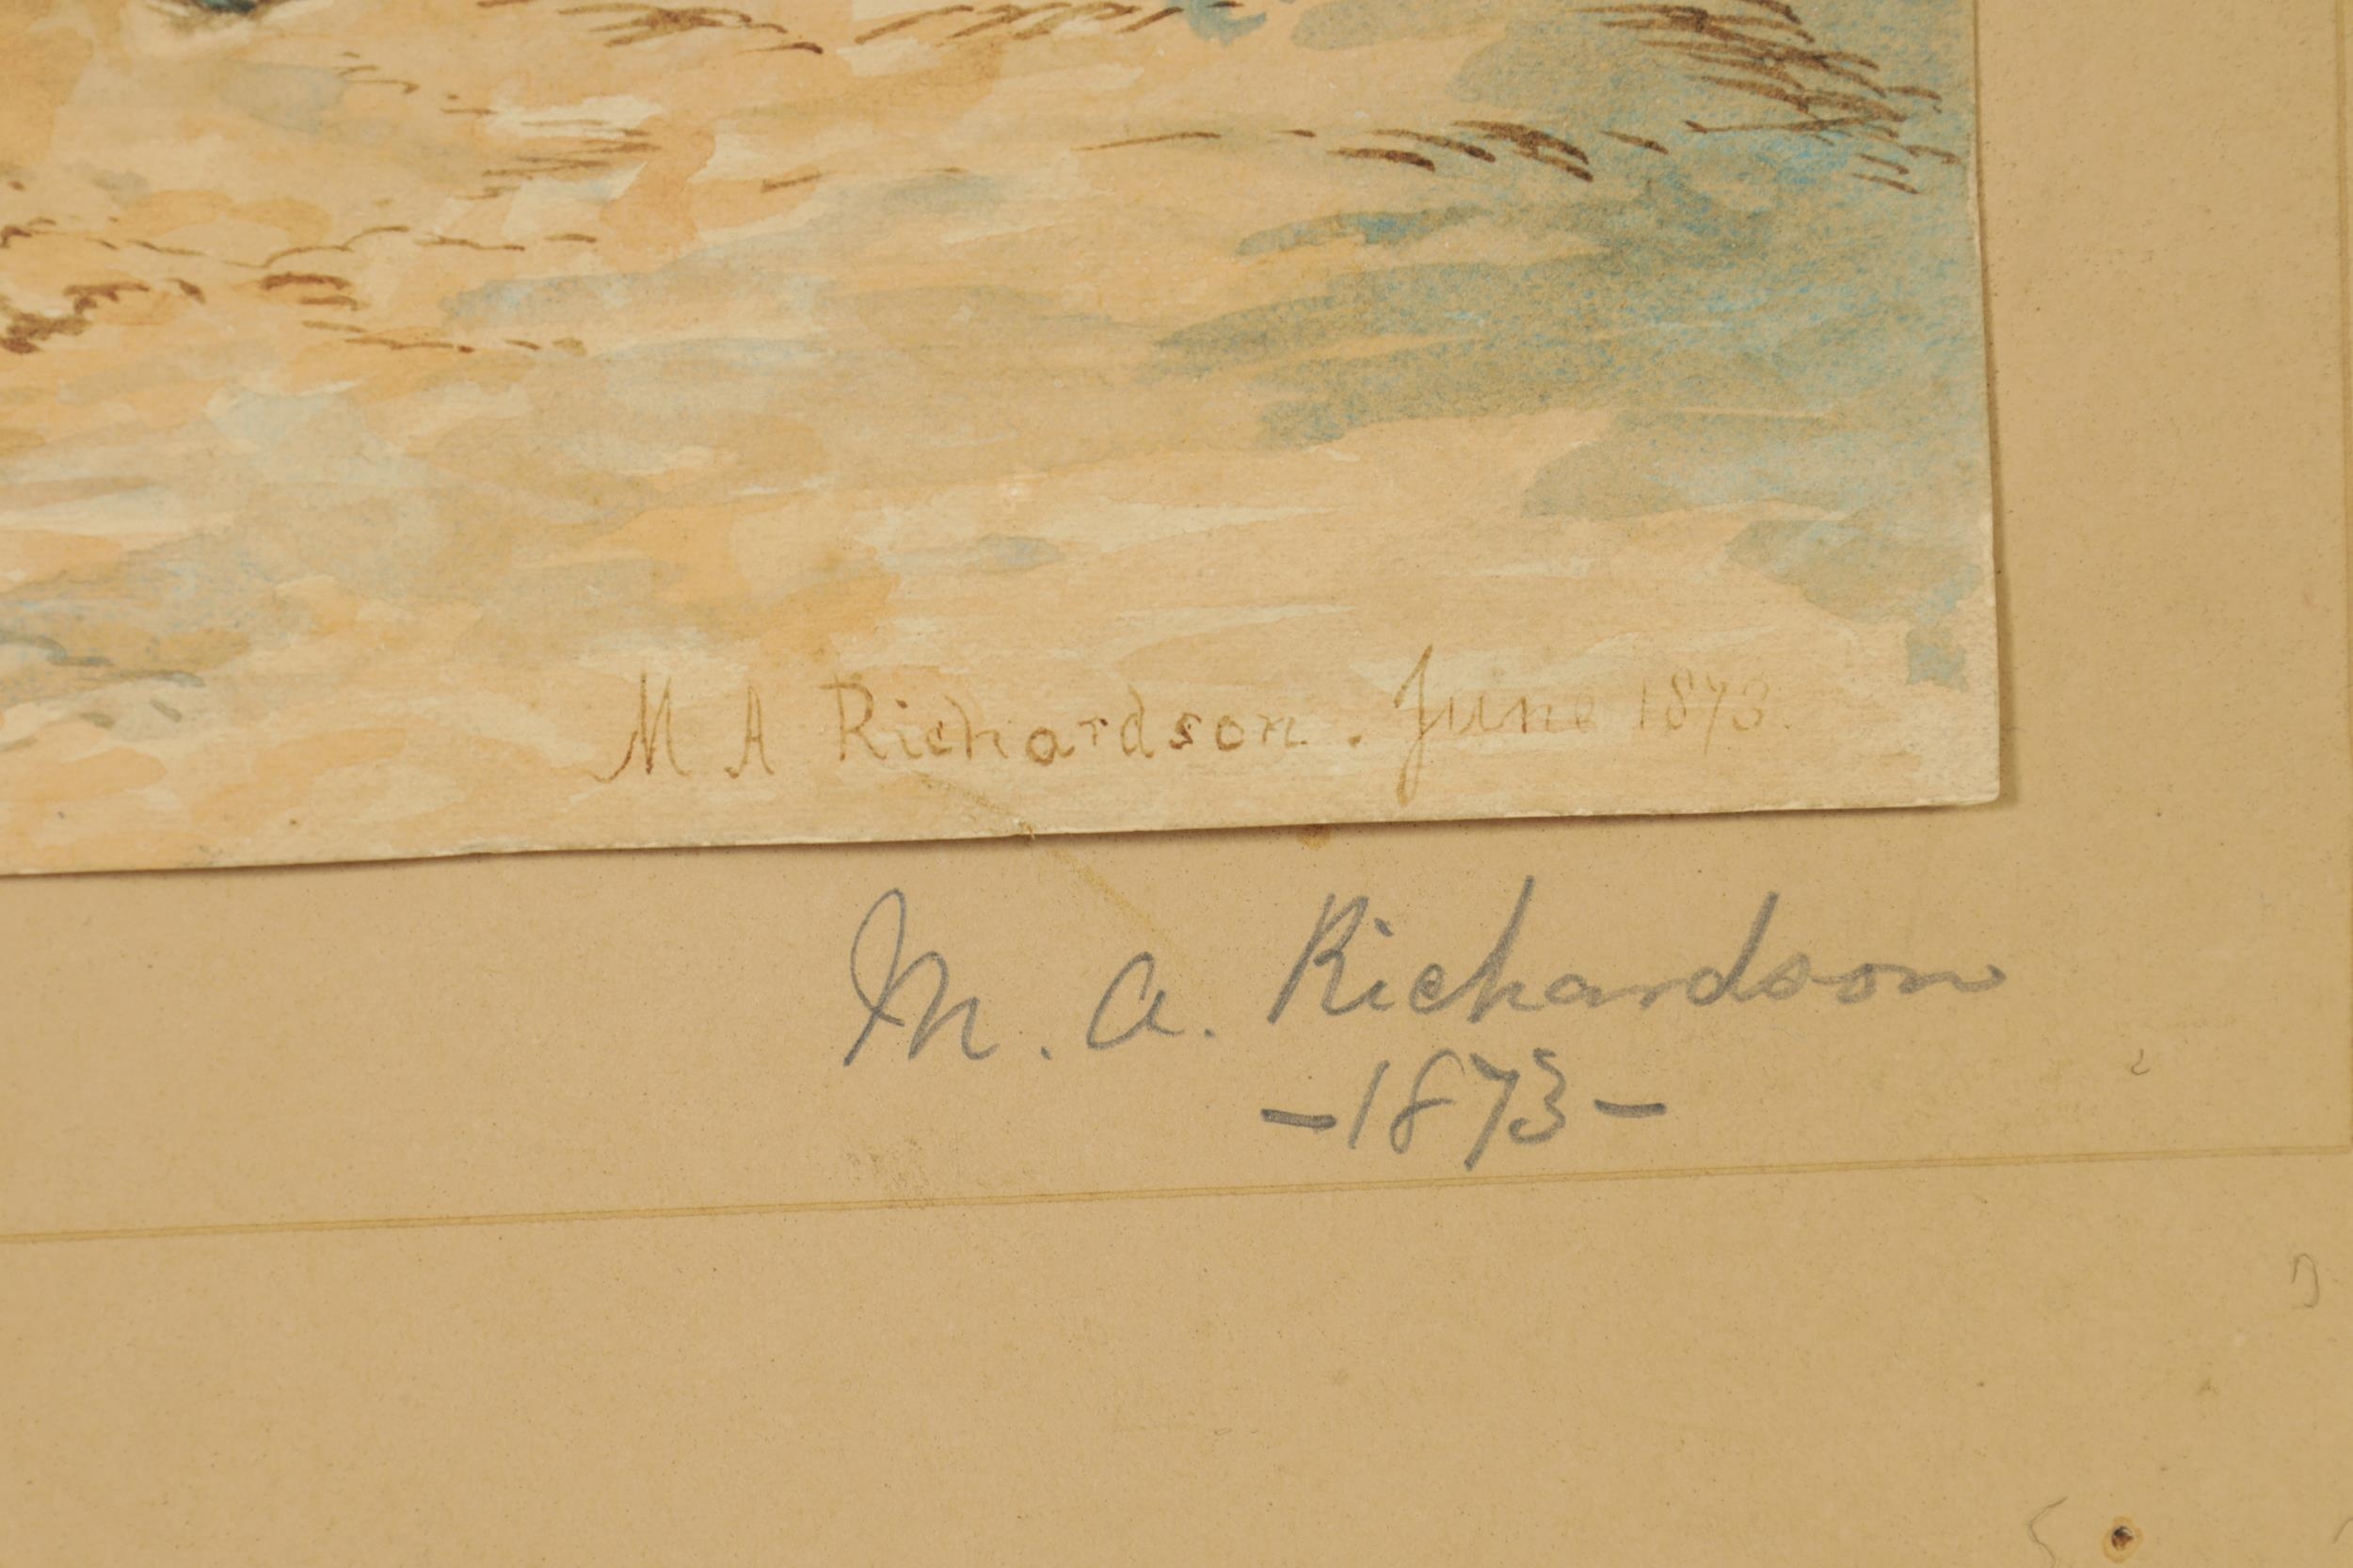 M A Richardson. June 1873.
M. A. Richardson
-1873-